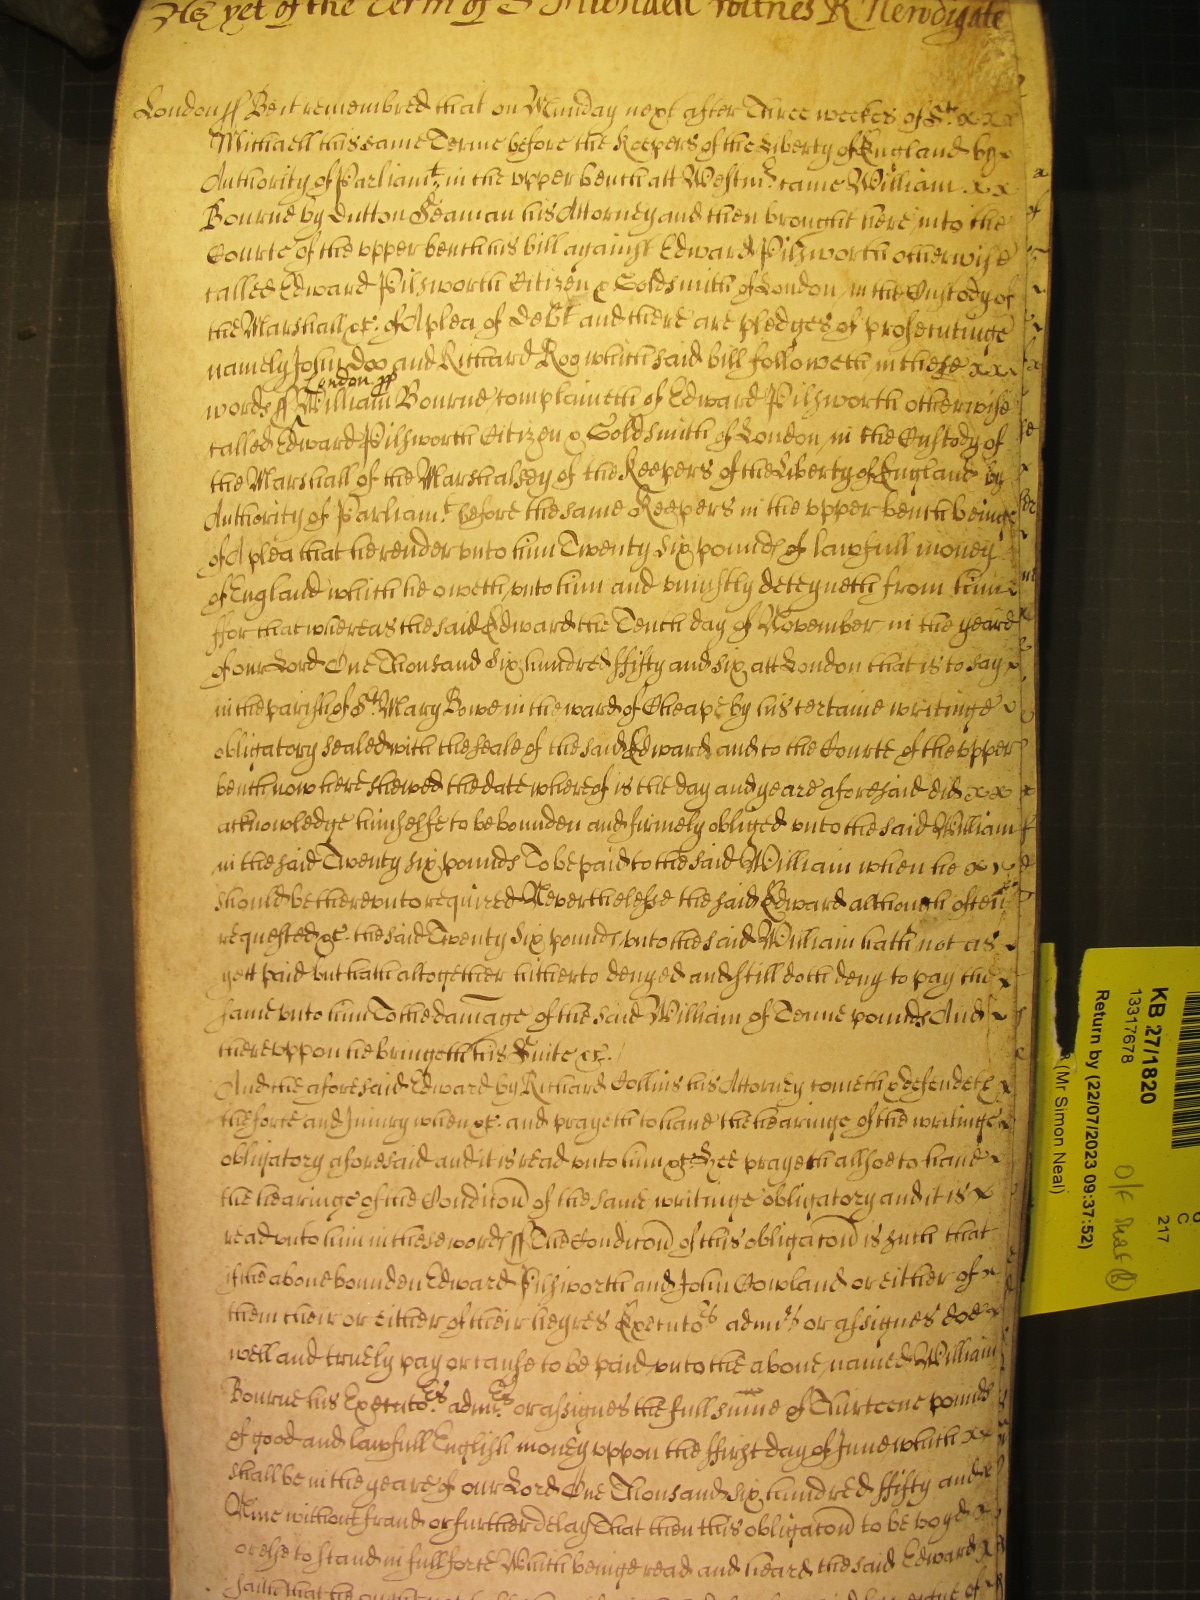 As yet of the Term of St Michaell Witnes R Newdigate
London ss Be it remembred that on Munday next after Three weekes of St. x x x
Michaell this same Terme before the Keepers of the Liberty of England by x
Authority of Parliamt. in the vpper bench att Westmr. came William x x
Bourne by Dutton Seaman his Attorney and then brought here into the
Courte of the vpper bench his bill against Edward Pilsworth otherwise
called Edward Pilsworth Citizen & Goldsmith of London in the Custody of
the Marshall &c. of A plea of Debt and there are pledges of prosecutinge
namely John Doo and Richard Roo which said bill followeth in these x x x
London ss
words ss William Bourne complaineth of Edward Pilsworth otherwise
called Edward Pilsworth Citizen & Goldsmith of London in the Custody of
the Marshall of the Marshalsey of the Keepers of the Liberty of England by
Authority of Parliamt. before the same Keepers in the vpper bench beinge
of A plea that he render vnto him Twenty six pounds of lawfull money
of England which he oweth vnto him and vniustly deteyneth from him
ffor that whereas the said Edward the Tenth day of November in the yeare
of our Lord One Thousand six hundred ffifty and six att London that is to say
in the parish of St. Mary Bowe in the ward of Cheape by his certaine writinge
obligatory sealed with the seale of the said Edward and to the Courte of the vpper
bench now here shewed the date whereof is the day and yeare aforesaid did x x x
acknowledge himselfe to be bounden and firmely obliged vnto the said William
in the said Twenty six pounds To be paid to the said William when he x
should be therevnto required Neverthelesse the said Edward although often
requested &c. the said Twenty six pounds vnto the said William hath not as
yett paid but hath altogether hitherto denyed and still doth deny to pay the
same vnto him To the damage of the said William of Tenne pounds And
therevppon he bringeth his Suite &c.
And the aforesaid Edward by Richard Collins his Attorney cometh & defendeth
the force and Iniury when &c. and prayeth to haue the hearinge of the writinge
obligatory aforesaid and it is read vnto him &c. Hee prayeth allsoe to haue
the hearinge of the Condicon of the same writinge obligatory and it is x
read vnto him in these words ss The Condicon of this obligacon is such that
if the aboue bounden Edward Pilsworth and John Cowland or either of x
them their or either of their heyres Executors admrs. or assignes doe x
well and truely pay or cause to be paid vnto the aboue named William
Bourne his Executors. admrs. or assignes the full sume of Thirteene pounds
of good and lawfull English money vppon the ffirst day of June which x x
shall be in the yeare of our Lord One Thousand six hundred ffifty and x
Nine without fraud or further delay That then this obligacon to be voyd x
or else to stand in full force Which beinge read and heard the said Edward x
saith that he ought not
KB 27/1820
13317678
Return by (22/07/2023 09:37:52)
(Mr Simon Neal)
C
217